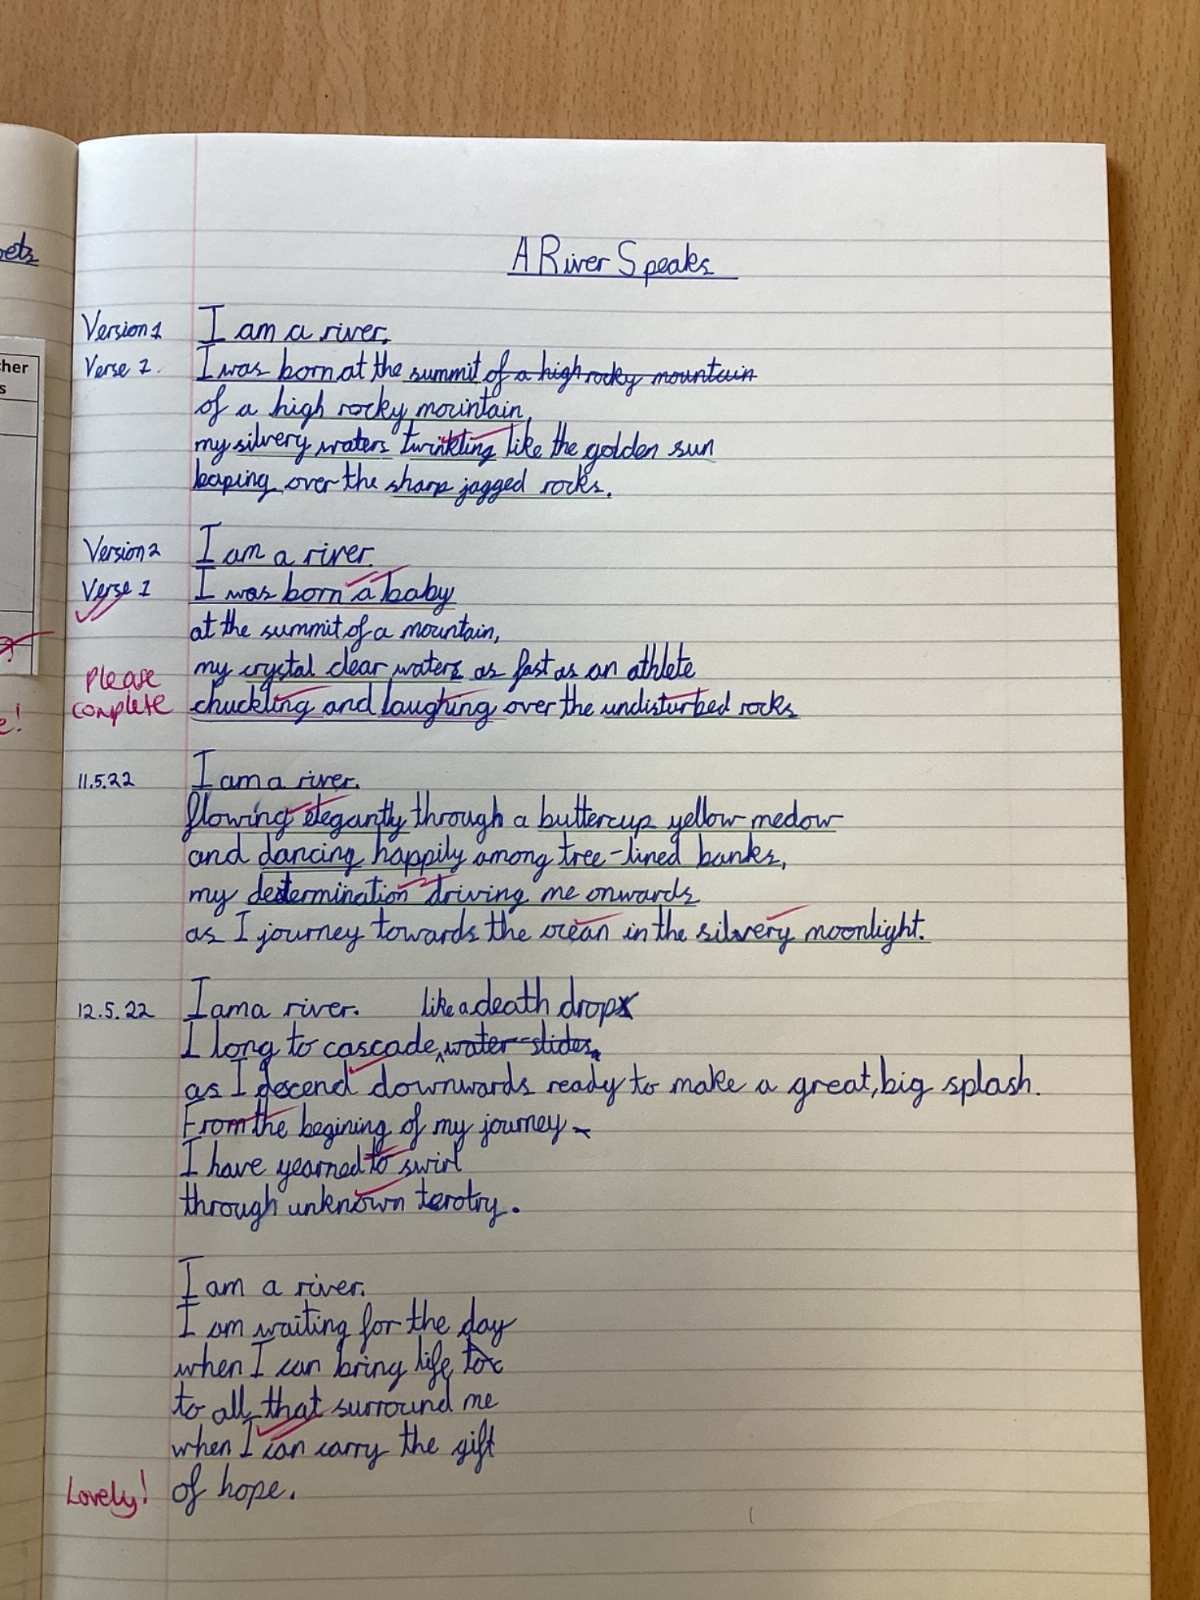 A River Speaks
Version 1 I am a river.
Verse 1. I was born at the summit of a high rocky mountain
of a high rocky mountain,
my silvery waters twinkling like the golden sun
leaping over the sharp jagged rocks.
Version 2 I am a river.
Verse 1 I was born a baby
at the summit of a mountain,
my crystal clear waters as fast as an athlete
Please
complete chuckling and laughing over the undisturbed rocks
11.5.22 I am a river.
flowing elegantly through a buttercup yellow medow
and dancing happily among tree-lined banks,
my determination driving me onwards
as I journey towards the ocean in the silvery moonlight.
12.5.22 I am a river. like a death drop
I long to cascade, water-slides,
as I descend downwards ready to make a great, big splash.
From the begining of my journey
I have yearned to swirl
through unknown terotry.
I am a river.
I am waiting for the day
when I can bring life to
to all that surround me
when I can carry the gift
Lovely! of hope.
cher
s
e!